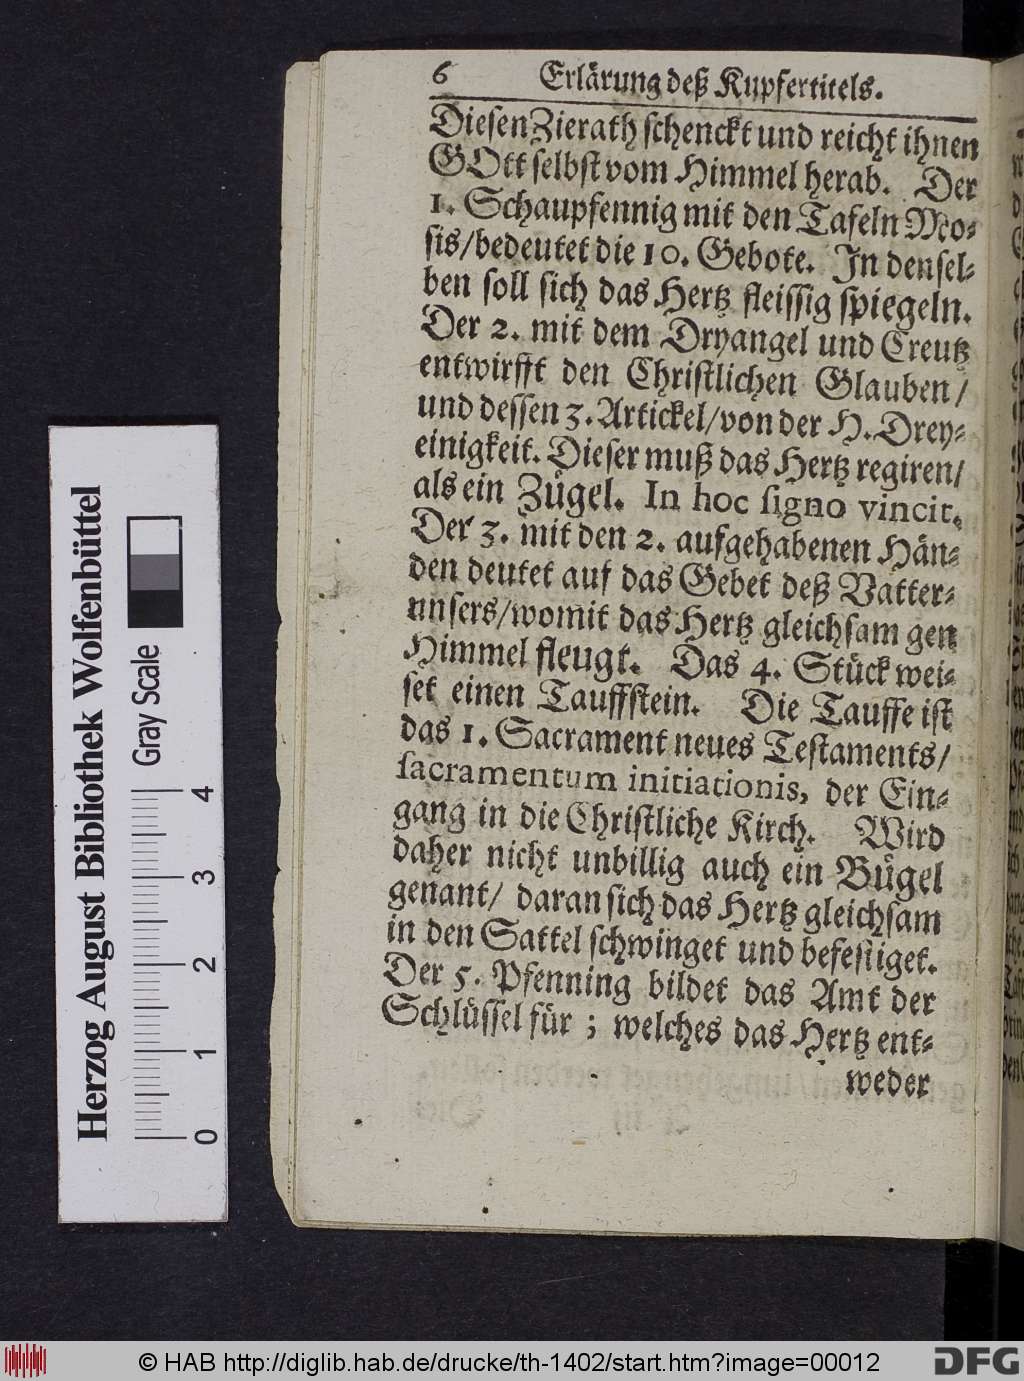 6 Erklärung deß Kupfertitels.
Diesen Zierath schenckt und reicht ihnen
GOtt selbst vom Himmel herab. Der
1. Schaupfennig mit den Tafeln Mo-
sis/bedeutet die 10. Gebote. In densel-
ben soll sich das Hertz fleissig spiegeln.
Der 2. mit dem Dryangel und Creutz
entwirfft den Christlichen Glauben/
und dessen 3. Artickel/von der H. Drey-
einigkeit. Dieser muß das Hertz regiren/
als ein Zügel. In hoc signo vincit.
Der 3. mit den 2. aufgehabenen Hän-
den deutet auf das Gebet deß Vatter-
unsers/womit das Hertz gleichsam gen
Himmel fleugt. Das 4. Stück wei-
set einen Tauffstein. Die Tauffe ist
das 1. Sacrament neues Testaments/
sacramentum initiationis, der Ein-
gang in die Christliche Kirch. Wird
daher nicht unbillig auch ein Bügel
genant/ daran sich das Hertz gleichsam
in den Sattel schwinget und befestiget.
Der 5. Pfenning bildet das Amt der
Schlüssel für ; welches das Hertz ent-
weder
Herzog August Bibliothek Wolfenbüttel
Gray Scale
0 1 2 3 4
© HAB http://diglib.hab.de/drucke/th-1402/start.htm?image=00012
DFG